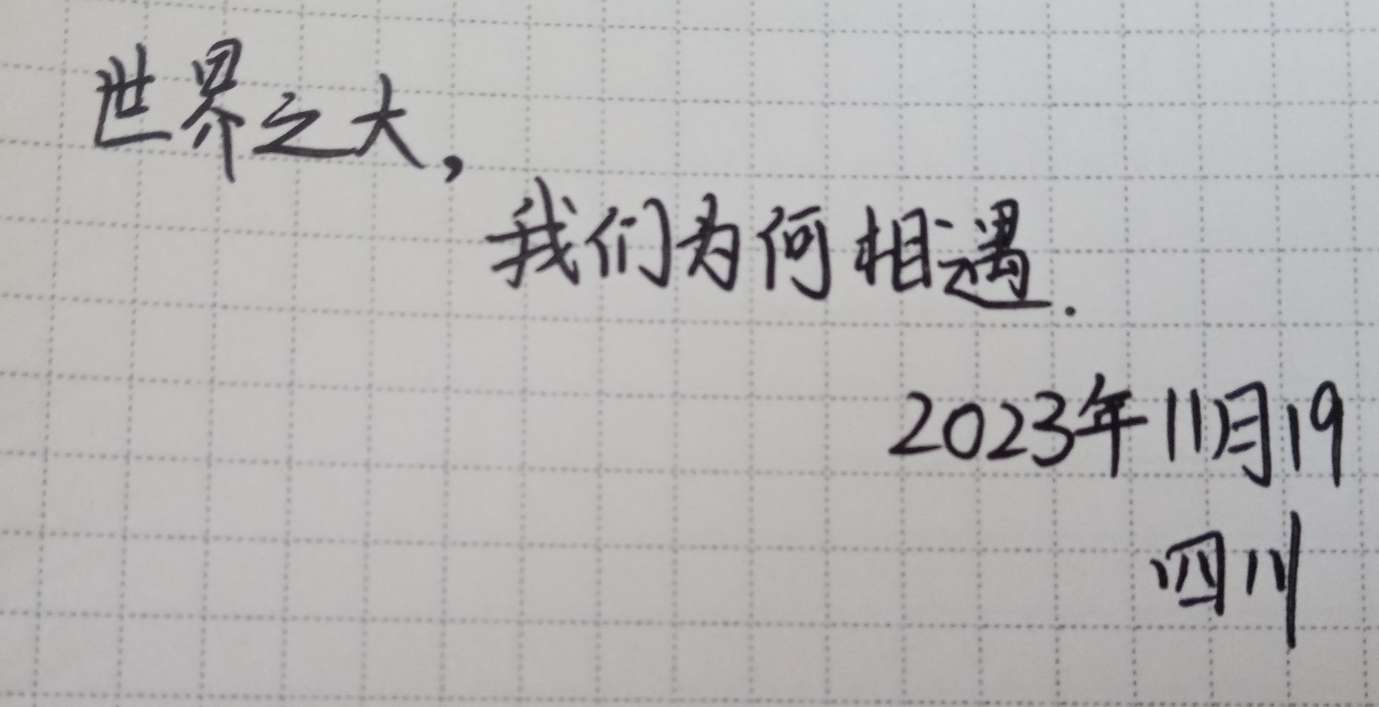 世界之大，
我们为何相遇.
2023年11月19
四川